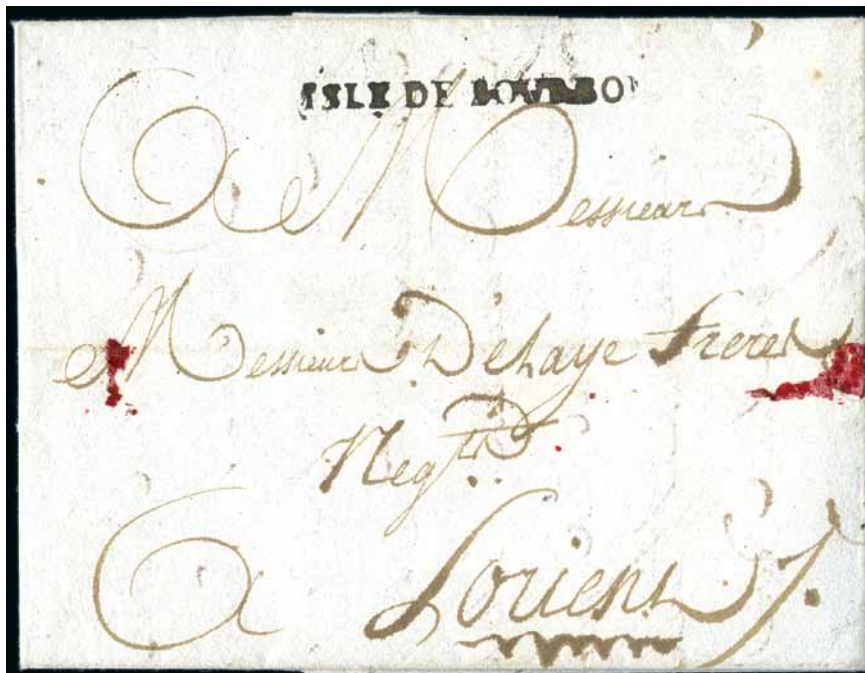 ISLE DE BOURBO
A Messieurs
Messieurs Dehaye freres
Negts
A Lorient